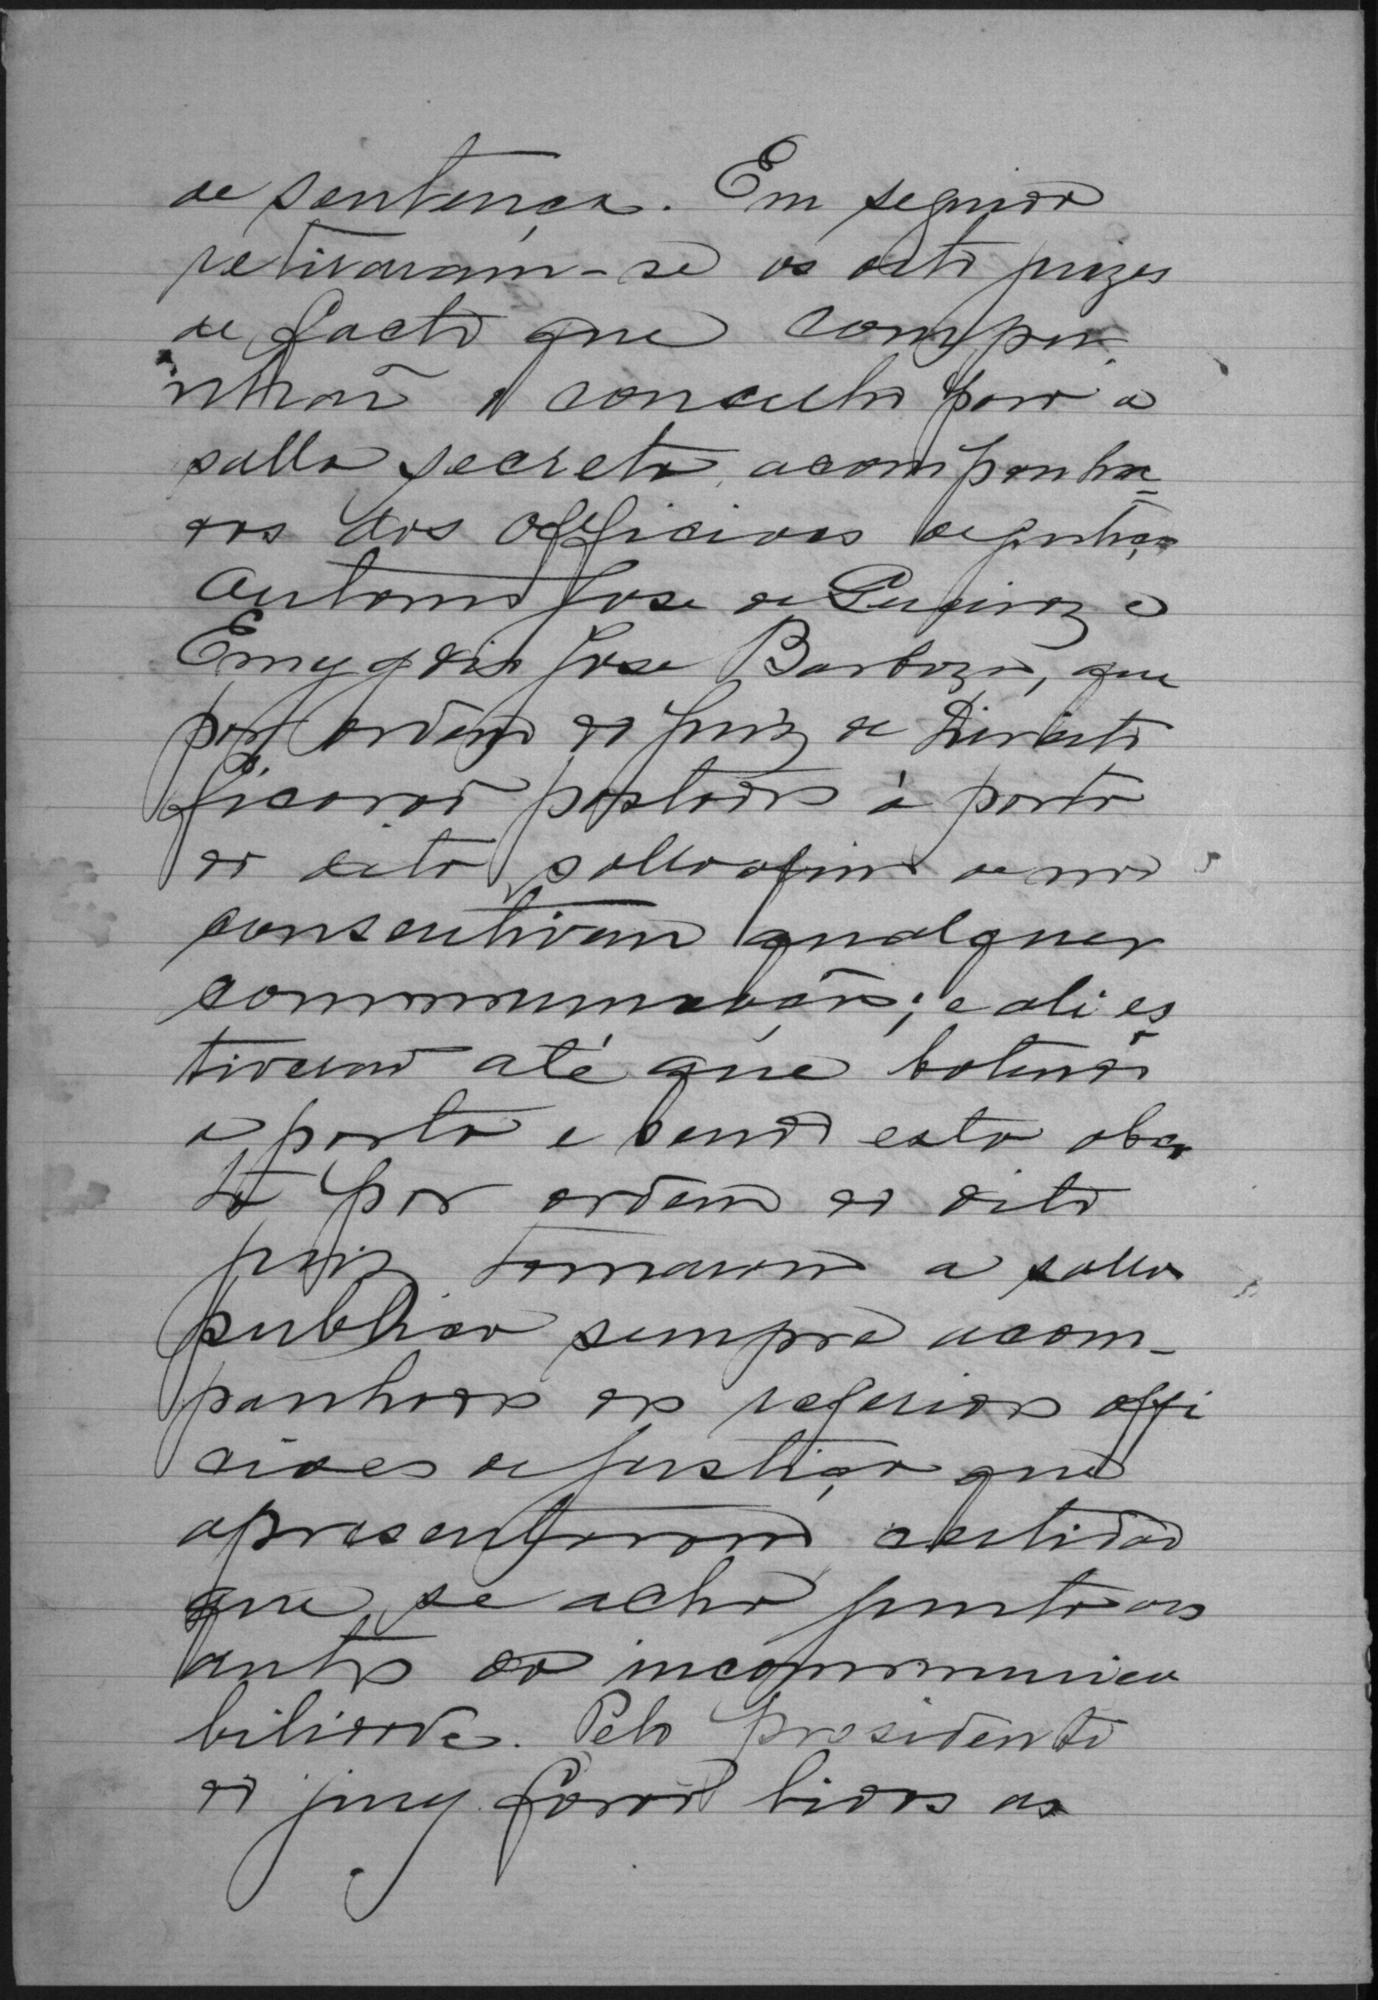 de sentença. Em seguida
retiraram-se os oito juizes
de facto que compu-
nhão o conselho para a
salla secreta, acompanha=
dos dos officiaes de justiça
Antonio Jose de Queiroz e
Emygdio Jose Barboza, que
por ordem do Juiz de Direito
ficarão postados á porta
da dita salla afim de não
consentirem qualquer
communicação; e ali es
tiverão até que baterão
a porta e sendo esta aber
ta por ordem do dito
juiz tornarão a salla
publica sempre acom-
panhados dos referidos offi
ciaes de justiça que
apresentaram certidão
que se acha junta aos
autos da incommunica
bilidade. Pelo presidente
do jury forão lidos as